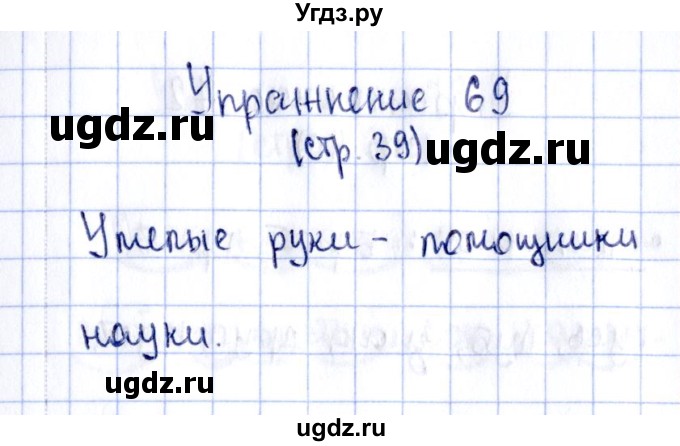 Угдз.ру
Упражнение 69
ugdz.ru
(стр. 39) ugdz.ru
Умелые руки - помощники
науки.
ugdz.ru
ugdz.ru